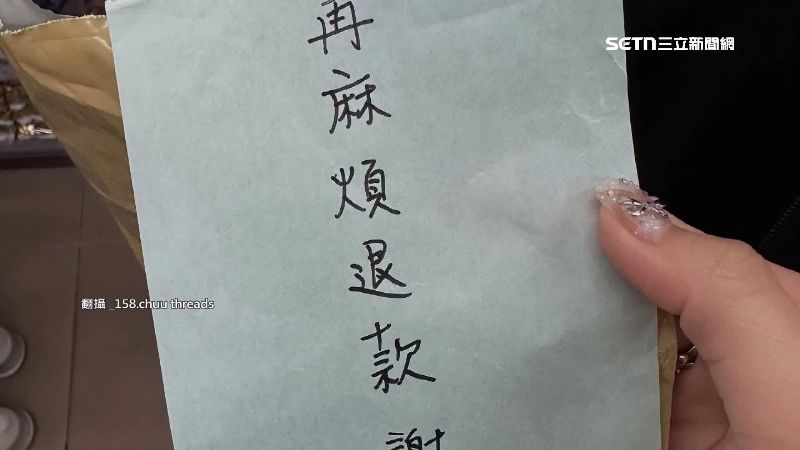 SETN三立新聞網
再麻煩退款謝
翻攝 _158.chuu threads